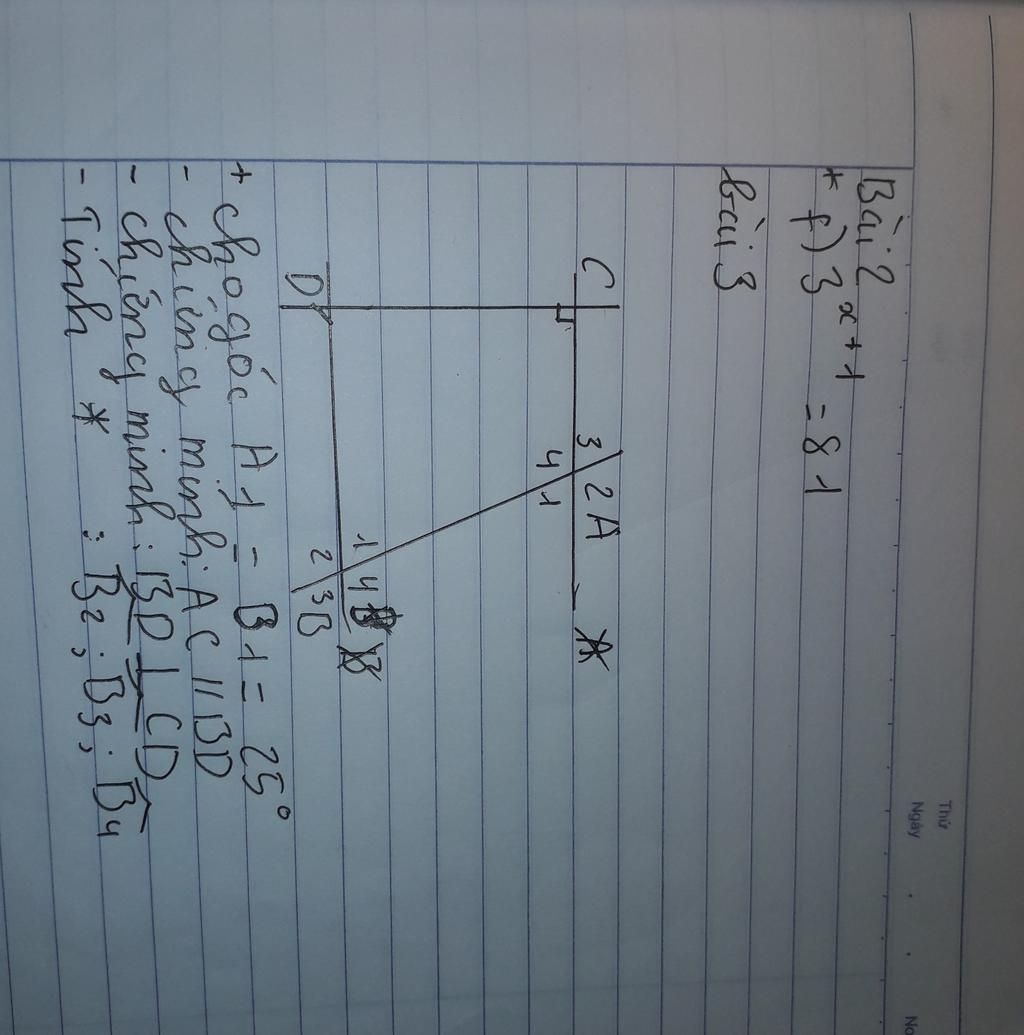 Thứ
Ngày
No
Bài 2
* f) 3^x+1 = 81
bài 3
C 3 2 A
4 1
1 4 B
D 2 3 B
+ cho góc A1 = B1 = 25°
- chứng minh: AC // BD
- chứng minh: BD ⊥ CD
- Tính * : B2 ; B3 ; B4